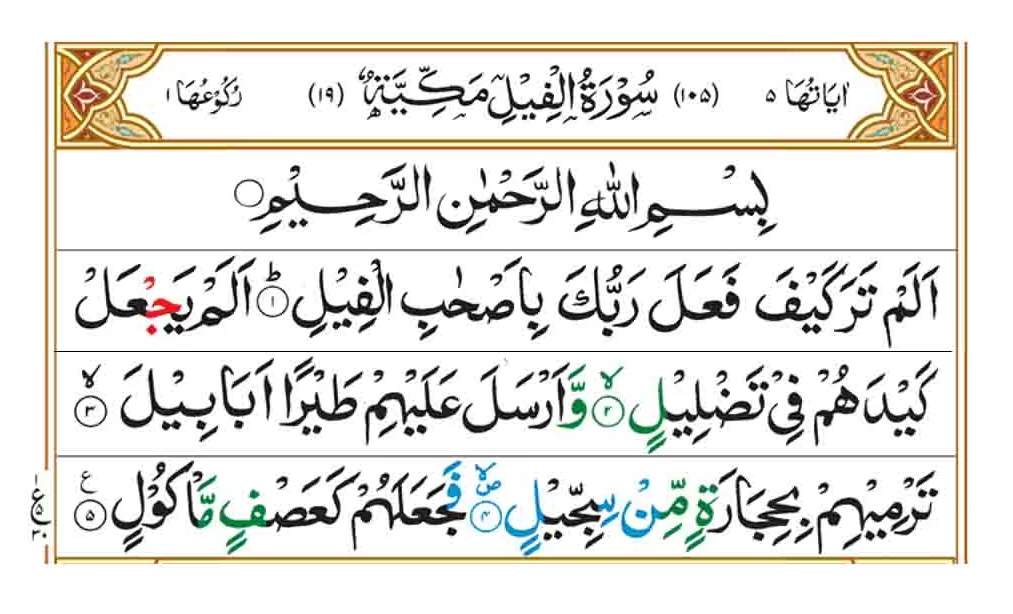 اٰیَاتُهَا ۵ (۱۰۵) سُوْرَةُ الْفِیْلِ مَكِّیَّةٌ (۱۹) رُكُوْعُهَا ۱
بِسْمِ اللّٰهِ الرَّحْمٰنِ الرَّحِیْمِ
اَلَمْ تَرَ كَیْفَ فَعَلَ رَبُّكَ بِاَصْحٰبِ الْفِیْلِؕ ۱ اَلَمْ یَجْعَلْ
كَیْدَهُمْ فِیْ تَضْلِیْلٍۙ ۲ وَّ اَرْسَلَ عَلَیْهِمْ طَیْرًا اَبَابِیْلَۙ ۳
تَرْمِیْهِمْ بِحِجَارَةٍ مِّنْ سِجِّیْلٍ۪ۙ ۴ فَجَعَلَهُمْ كَعَصْفٍ مَّاْكُوْلٍ ۵ ع